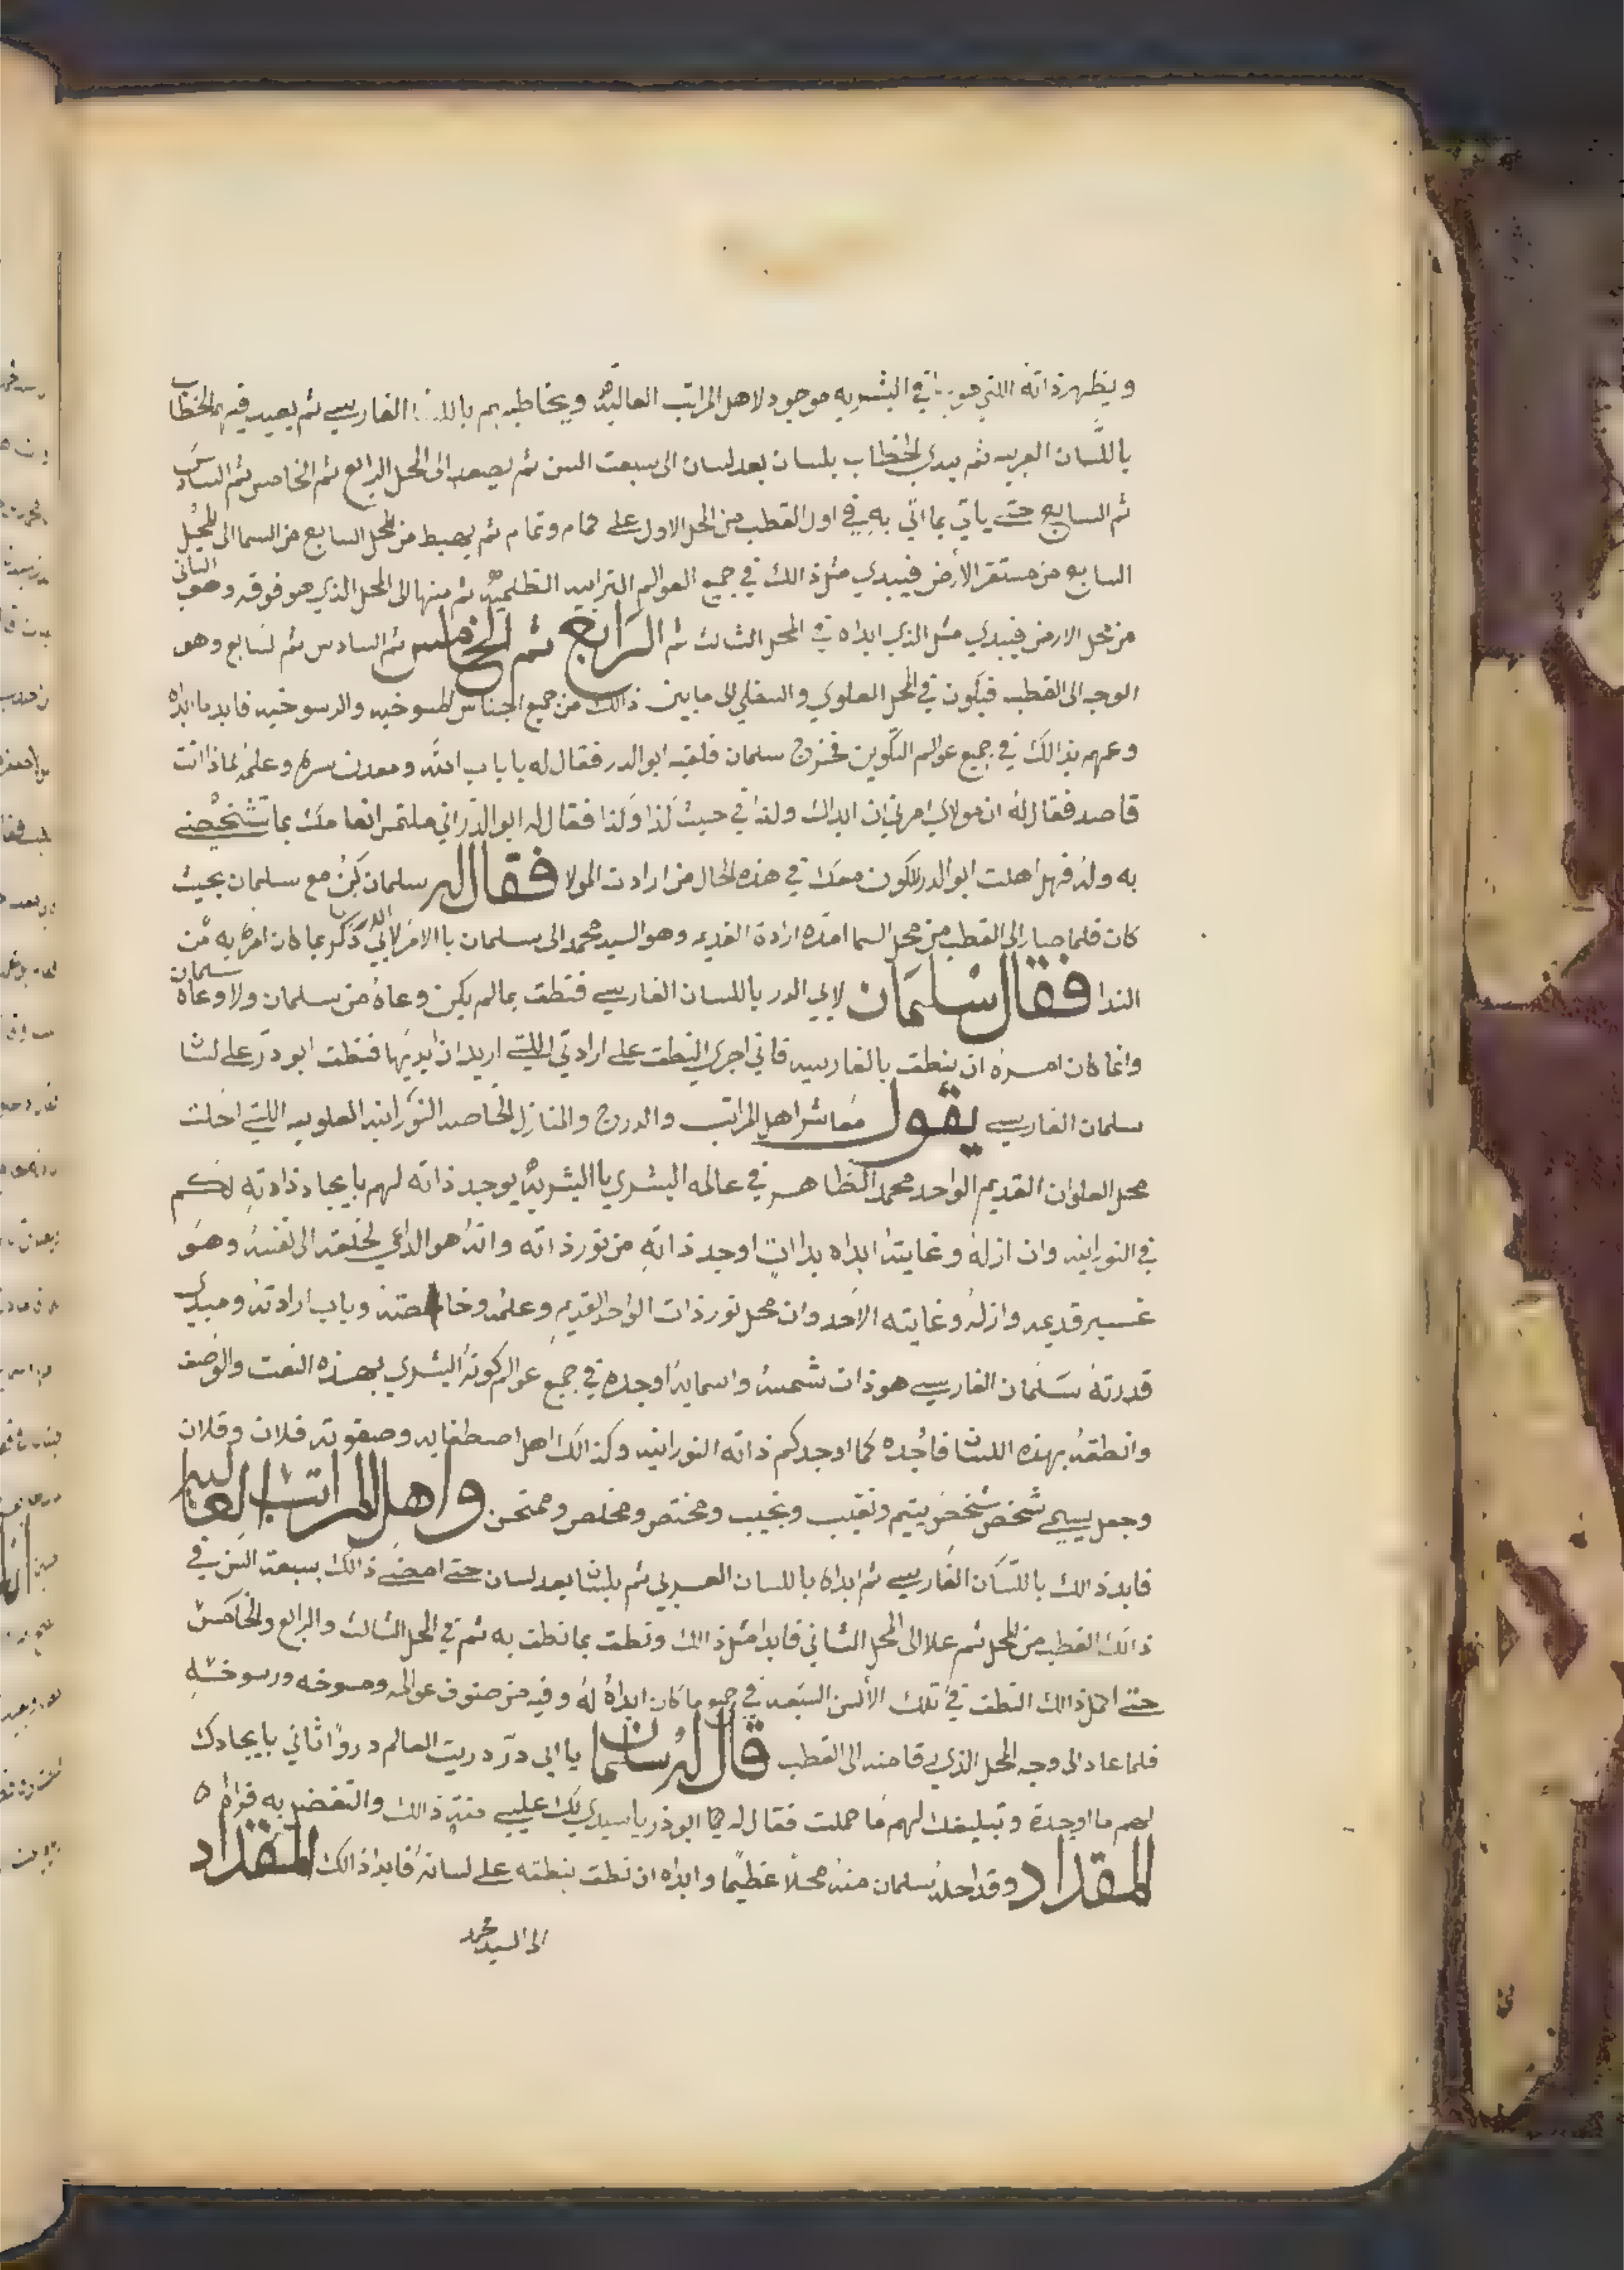 ويظهر ذاته اللتي هو بها في البشريه موجود لاهل المراتب العاليه ويخاطبهم بالل الفارسي ثم يعيد فيهم الخطاب
باللسان العربيه ثم يبدي الخطاب بلسان بعد لسان الى سبعت السن ثم يصعد الى المحل الرابع ثم الخامس ثم السادس
ثم السابع حتى ياتي بما اتى به في اول القطب من المحل الاول على تمام وتمام ثم يهبط من المحل السابع من السما الى المحل
السابع من مستقر الأرض فيبدي مثل ذالك في جميع العوالم الترابيه الظلميه ثم منها الى المحل الذي هو فوقه وهو الثاني
من محل الارض فيبدي مثل الذي ابداه في المحل الثالث ثم الرابع ثم الخامس ثم السادس ثم لسابع وهو
الوجه الى القطب فيكون في المحل العلوي والسفلي الى ما بين ذالك من جميع اجناس المسوخيه والرسوخيه فابد ما ابداه
وعمهم بذالك في جميع عوالم التكوين فخرج سلمان فلقيه ابو الدر فقال له يا باب الله ومعدن سره وعلمه لماذا انت
قاصد فقال له ان مولاي امرني ان ابداك ولذا في حيث كذا وكذا فقال له ابو الذر اني ملتمس انعامك بما شخصني
به وله فهل اهلت ابو الدر لاكون معك في هذه الحال من ارادت المولا فقال له سلمان كن مع سلمان بحيث
كان فلما صار الى القطب من محل السما امده ارادة القديم وهو السيد محمد الى سلمان باالامر لابي الدر ذكر بما كان امره به من
الندا فقال سلمان لابي الدر باللسان الفارسي فنطق بما لم يكن وعاه من سلمان ولا وعاه سلمان
وانما كان امره ان ينطق بالفارسيه فاني اجري النطق على ارادتي اللتي اريد ان ابديها فنطق ابو در على لسا
سلمان الفارسي يقول معاشر اهل المراتب والدرج والمنازل الخاصه النورانيه العلويه اللتي احلت
محل العلو ان القديم الواحد محمد الظاهر في عالمه البشري باالبشريه يوجد ذاته لهم بايجاد ذاته لكم
في النورانيه وان ازله وغايته ابداه بذات اوجد ذاته من نور ذاته وانه هو الداعي لخلقه الى نفسه وهو
غير قديمه وازله وغايته الاحد وان محل نور ذات الواحد القديم وعلمه وخاصته وباب ارادته ومبدي
قدرته سلمان الفارسي هو ذات شمسه واسمايه اوجده في جميع عوالم كونه البشري بهذه النعت والوصف
وانطقه بهذه اللسا فاجده كما اوجدكم ذاته النورانيه وكذالك اهل اصطفايه وصفوته فلان وفلان
وجعل يسمي شخص شخص يتيم ونقيب ونجيب ومختص ومخلص وممتحن واهل المراتب العاليه
فابد ذالك باللسان الفارسي ثم ابداه باللسان العربي ثم بلسا بعد لسان حتى امضى ذالك بسبعة السن في
ذالك القطب من المحل ثم علا الى المحل الثاني فابدا مثل ذالك ونطق بما نطق به ثم في المحل الثالث والرابع والخامس
حتى اكمل ذالك النطق في تلك الألسن السبعه في جميع ما كان ابداه له وفيه من صنوف عوالمه ومسوخه ورسوخه
فلما عاد الى وجه المحل الذي رقا منه الى القطب قال له سلمان يا ابي در دريت العالم دروا ثاني بايجادك
لهم ما اوجدة وتبليغك لهم ما حملت فقال له ابو ذر يا سيدي بك علي منة ذالك والتفضل به فراه
المقداد وقد احله سلمان منه محلا عظيما وابداه ان نطق بنطقه على لسانه فابدا ذالك المقداد
الى السيد محمد